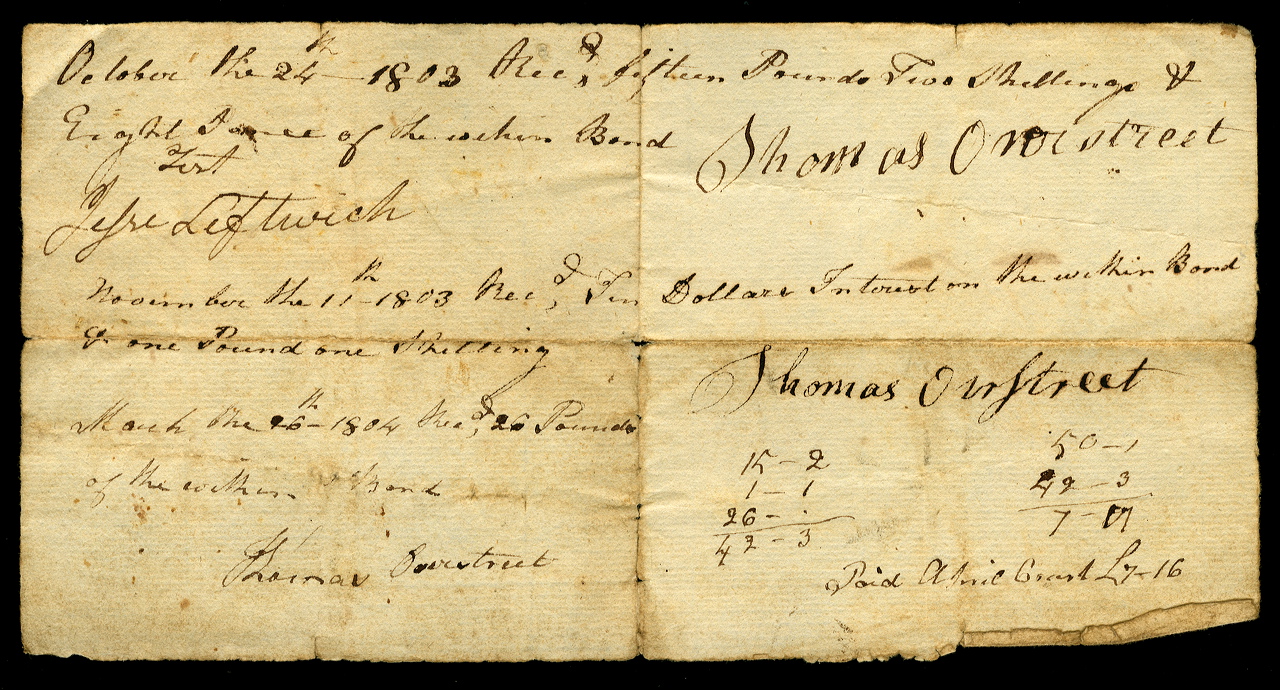 October the 24th 1803 Recd, fifteen Pounds Two Shillings &
Eight Pence of the within Bond
Thomas Overstreet
Test
Jesse Leftwich
November the 11th 1803 Recd, Ten Dollars Interest on the within Bond
& one Pound one Shilling
Thomas Overstreet
March the 26th 1804 Recd, 26 Pounds
of the within Bond
Thomas Overstreet
15 - 2
1 - 1
26 - .
42 - 3
50 - 1
42 - 3
7 - 17
Paid April Court £7-16